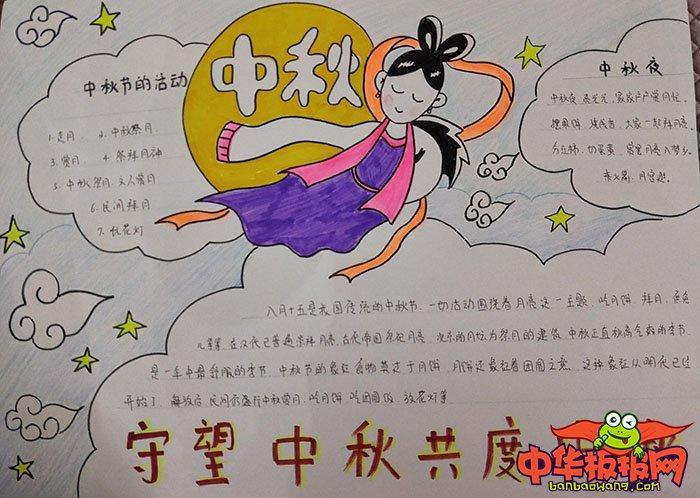 中秋
中秋节的活动
1.走月 2.中秋祭月
3.赏月 4.祭拜月神
5.中秋祭月.文人赏月
6.民间拜月
7.玩花灯
中秋夜
中秋夜.亮光光,家家户户赏月忙.
摆果饼,烧线香,大家一起拜月亮
分红柿,切菜黄
乘火箭,月宫逛.
八月十五是我国传统的中秋节.一切活动围绕着月亮这一主题,吃月饼,拜月,
在汉代已普遍祭拜月亮,古代帝国祭祀月亮,北京的月坛为祭月的建筑,中秋正直秋高气爽的季节.
是一年中最舒服的季节,中秋节的象征食物莫过于月饼,月饼还象征着团圆之意,这种象征从明代已经
开始了,解放后,民间仍盛行中秋赏月,吃月饼,吃团圆饭,放花灯等
守望中秋共度
中华板报网
banbaowang.com